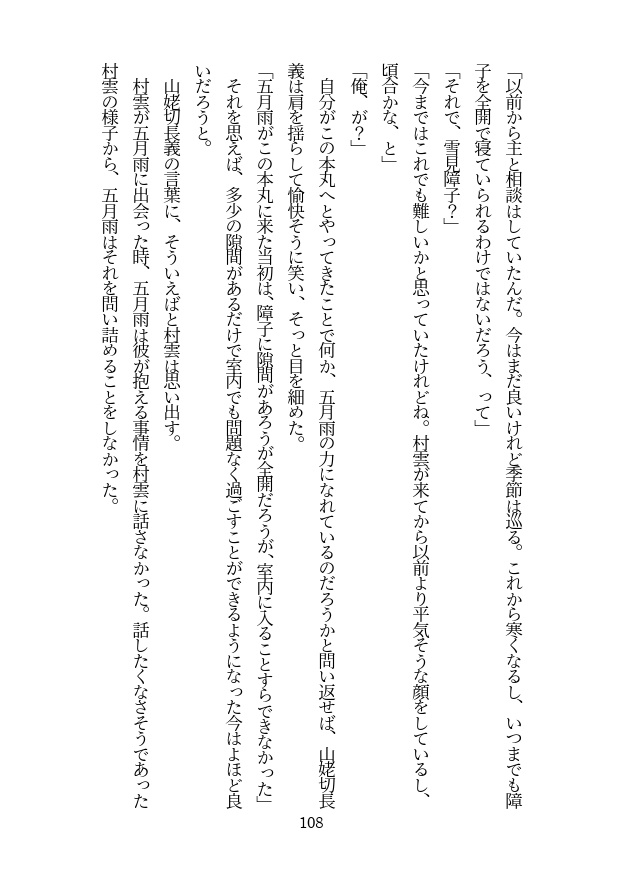 「以前から主と相談はしていたんだ。今はまだ良いけれど季節は巡る。これから寒くなるし、いつまでも障
子を全開で寝ていられるわけではないだろう、って」
「それで、雪見障子？」
「今まではこれでも難しいかと思っていたけれどね。村雲が来てから以前より平気そうな顔をしているし、
頃合かな、と」
「俺、が？」
自分がこの本丸へとやってきたことで何か、五月雨の力になれているのだろうかと問い返せば、山姥切長
義は肩を揺らして愉快そうに笑い、そっと目を細めた。
「五月雨がこの本丸に来た当初は、障子に隙間があろうが全開だろうが、室内に入ることすらできなかった」
それを思えば、多少の隙間があるだけで室内でも問題なく過ごすことができるようになった今はよほど良
いだろうと。
山姥切長義の言葉に、そういえばと村雲は思い出す。
村雲が五月雨に出会った時、五月雨は彼が抱える事情を村雲に話さなかった。話したくなさそうであった
村雲の様子から、五月雨はそれを問い詰めることをしなかった。
108